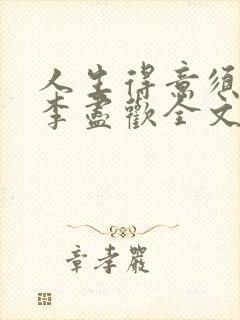 人生得意须
李盡歡全文
章孝嚴